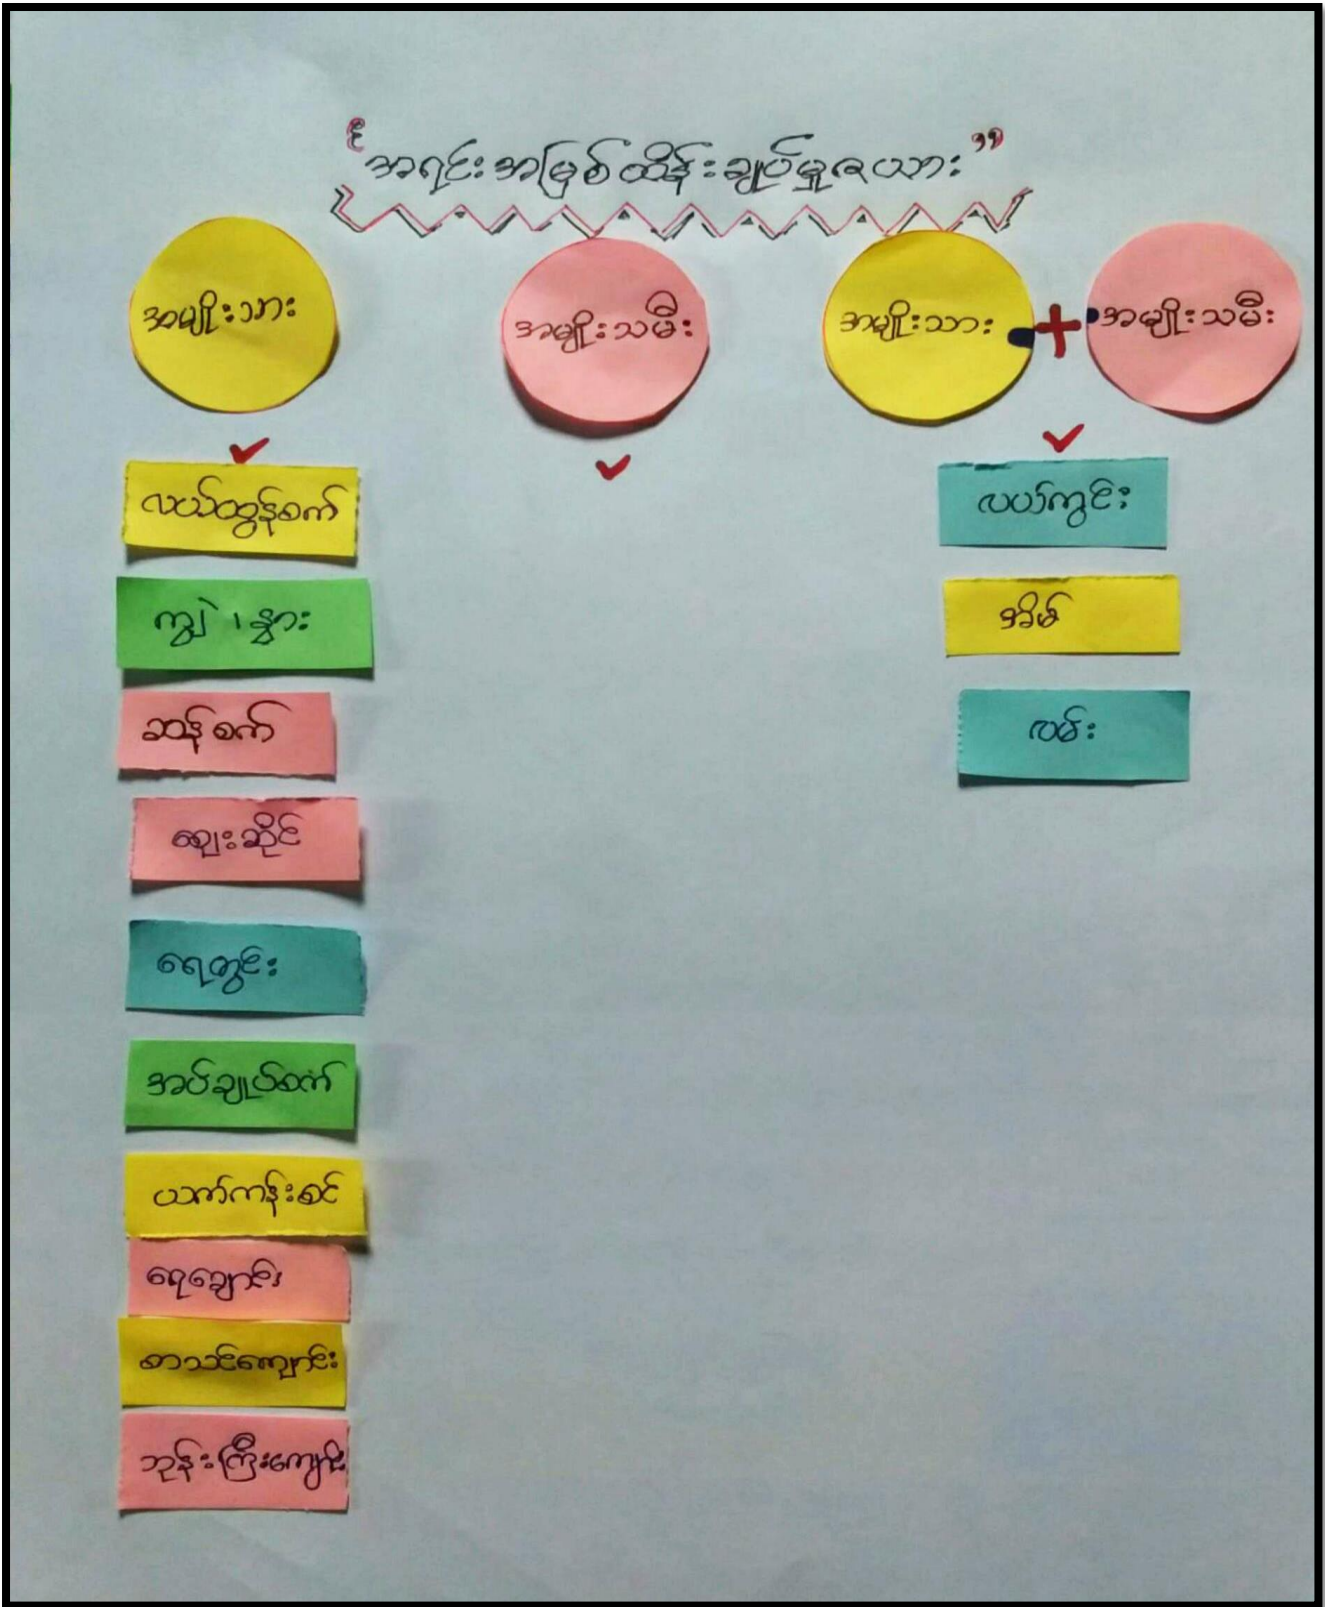 “အရင်းအမြစ်ထိန်းချုပ်မှုဇယား”
အမျိုးသား
အမျိုးသမီး
အမျိုးသား + အမျိုးသမီး
လယ်ထွန်စက်
ကျွဲ ၊ နွား
ဆန်စက်
ဈေးဆိုင်
ရေတွင်း
အပ်ချုပ်စက်
ယက်ကန်းစင်
ရေချောင်း
စာသင်ကျောင်း
ဘုန်းကြီးကျောင်း
လယ်ကွင်း
အိမ်
လမ်း